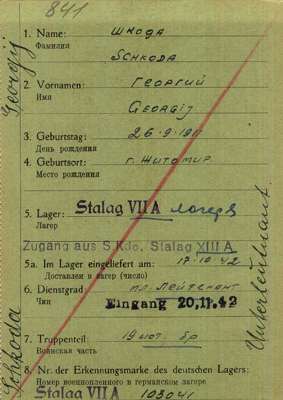 841
1. Name: Шкода
Фамилия
SCHKODA
2. Vornamen: Георгий
Имя
GEORGIJ
3. Geburtstag: 26-9-1911
День рождения
4. Geburtsort: г. Житомир
Место рождения
5. Lager: Stalag VII A лагеря
Лагер
Zugang aus S Kdo. Stalag XIII A
5a. Im Lager eingeliefert am: 17-10 42
Доставлен в лагер (число)
6. Dienstgrad: мл. Лейтенант
Чин
Eingang 20.11.42
7. Truppenteil: 19 мот. бр
Воинская часть
8. Nr. der Erkennungsmarke des deutschen Lagers:
Номер военнопленного в германском лагере
Stalag VII A 103041
Schkoda Georgij
Unterleutnant